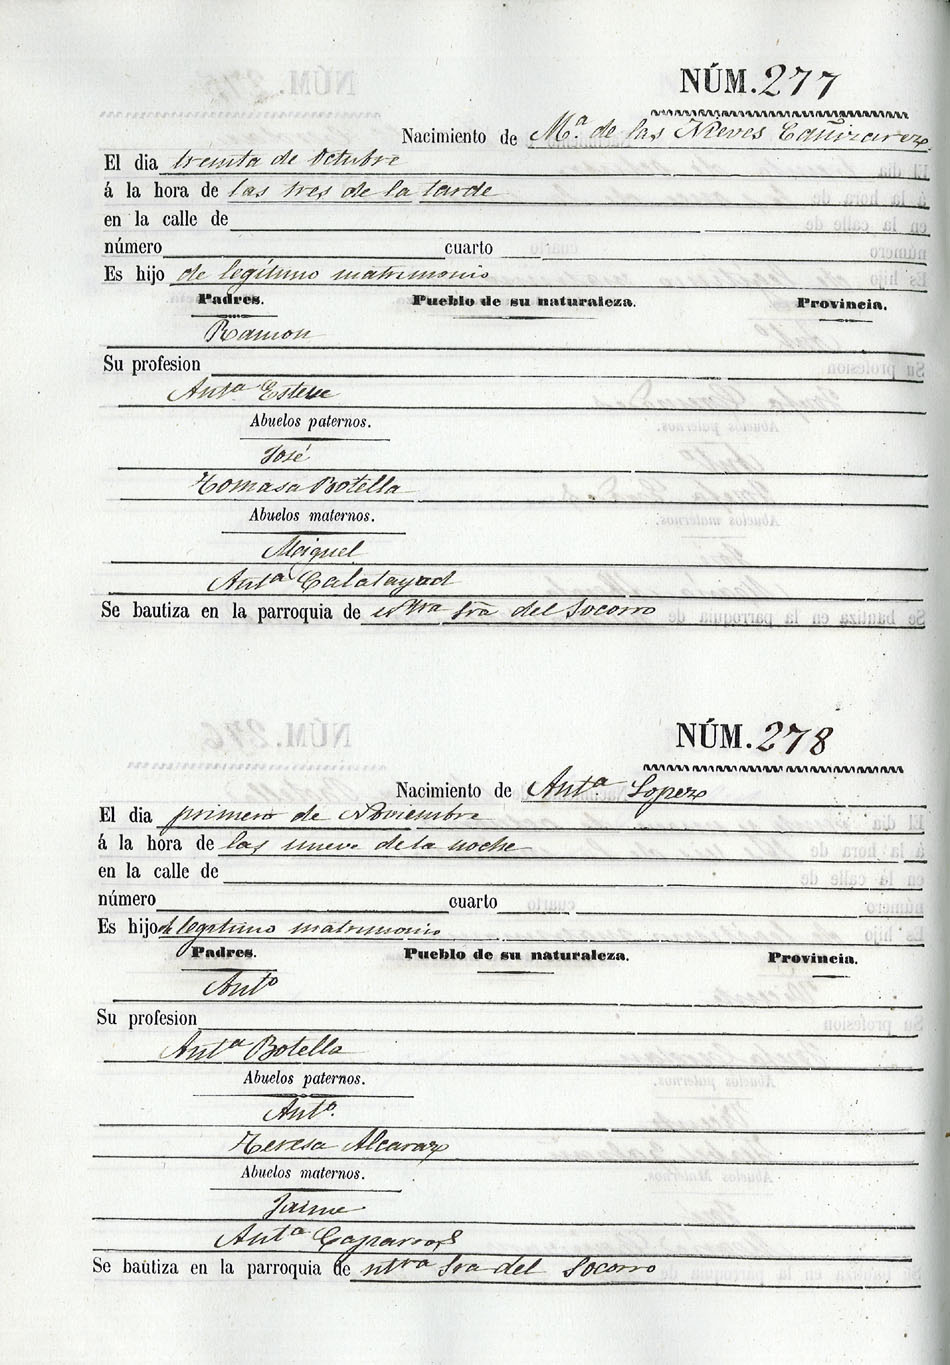 NÚM. 277
Nacimiento de Mª. de las Nieves Cañizarez
El dia treinta de Octubre
á la hora de las tres de la tarde
en la calle de
número cuarto
Es hijo de legítimo matrimonio
Padres. Pueblo de su naturaleza. Provincia.
Ramon
Su profesion
Antª Esteve
Abuelos paternos.
José
Tomasa Botella
Abuelos maternos.
Miguel
Antª Calatayud
Se bautiza en la parroquia de ntra Sra del Socorro
NÚM. 278
Nacimiento de Antª Lopez
El dia primero de Noviembre
á la hora de las nueve de la noche
en la calle de
número cuarto
Es hijo de legitimo matrimonio
Padres. Pueblo de su naturaleza. Provincia.
Antº
Su profesion
Antª Botella
Abuelos paternos.
Antº.
Teresa Alcaraz
Abuelos maternos.
Jaime
Antª Caparros
Se bautiza en la parroquia de ntra Sra del Socorro